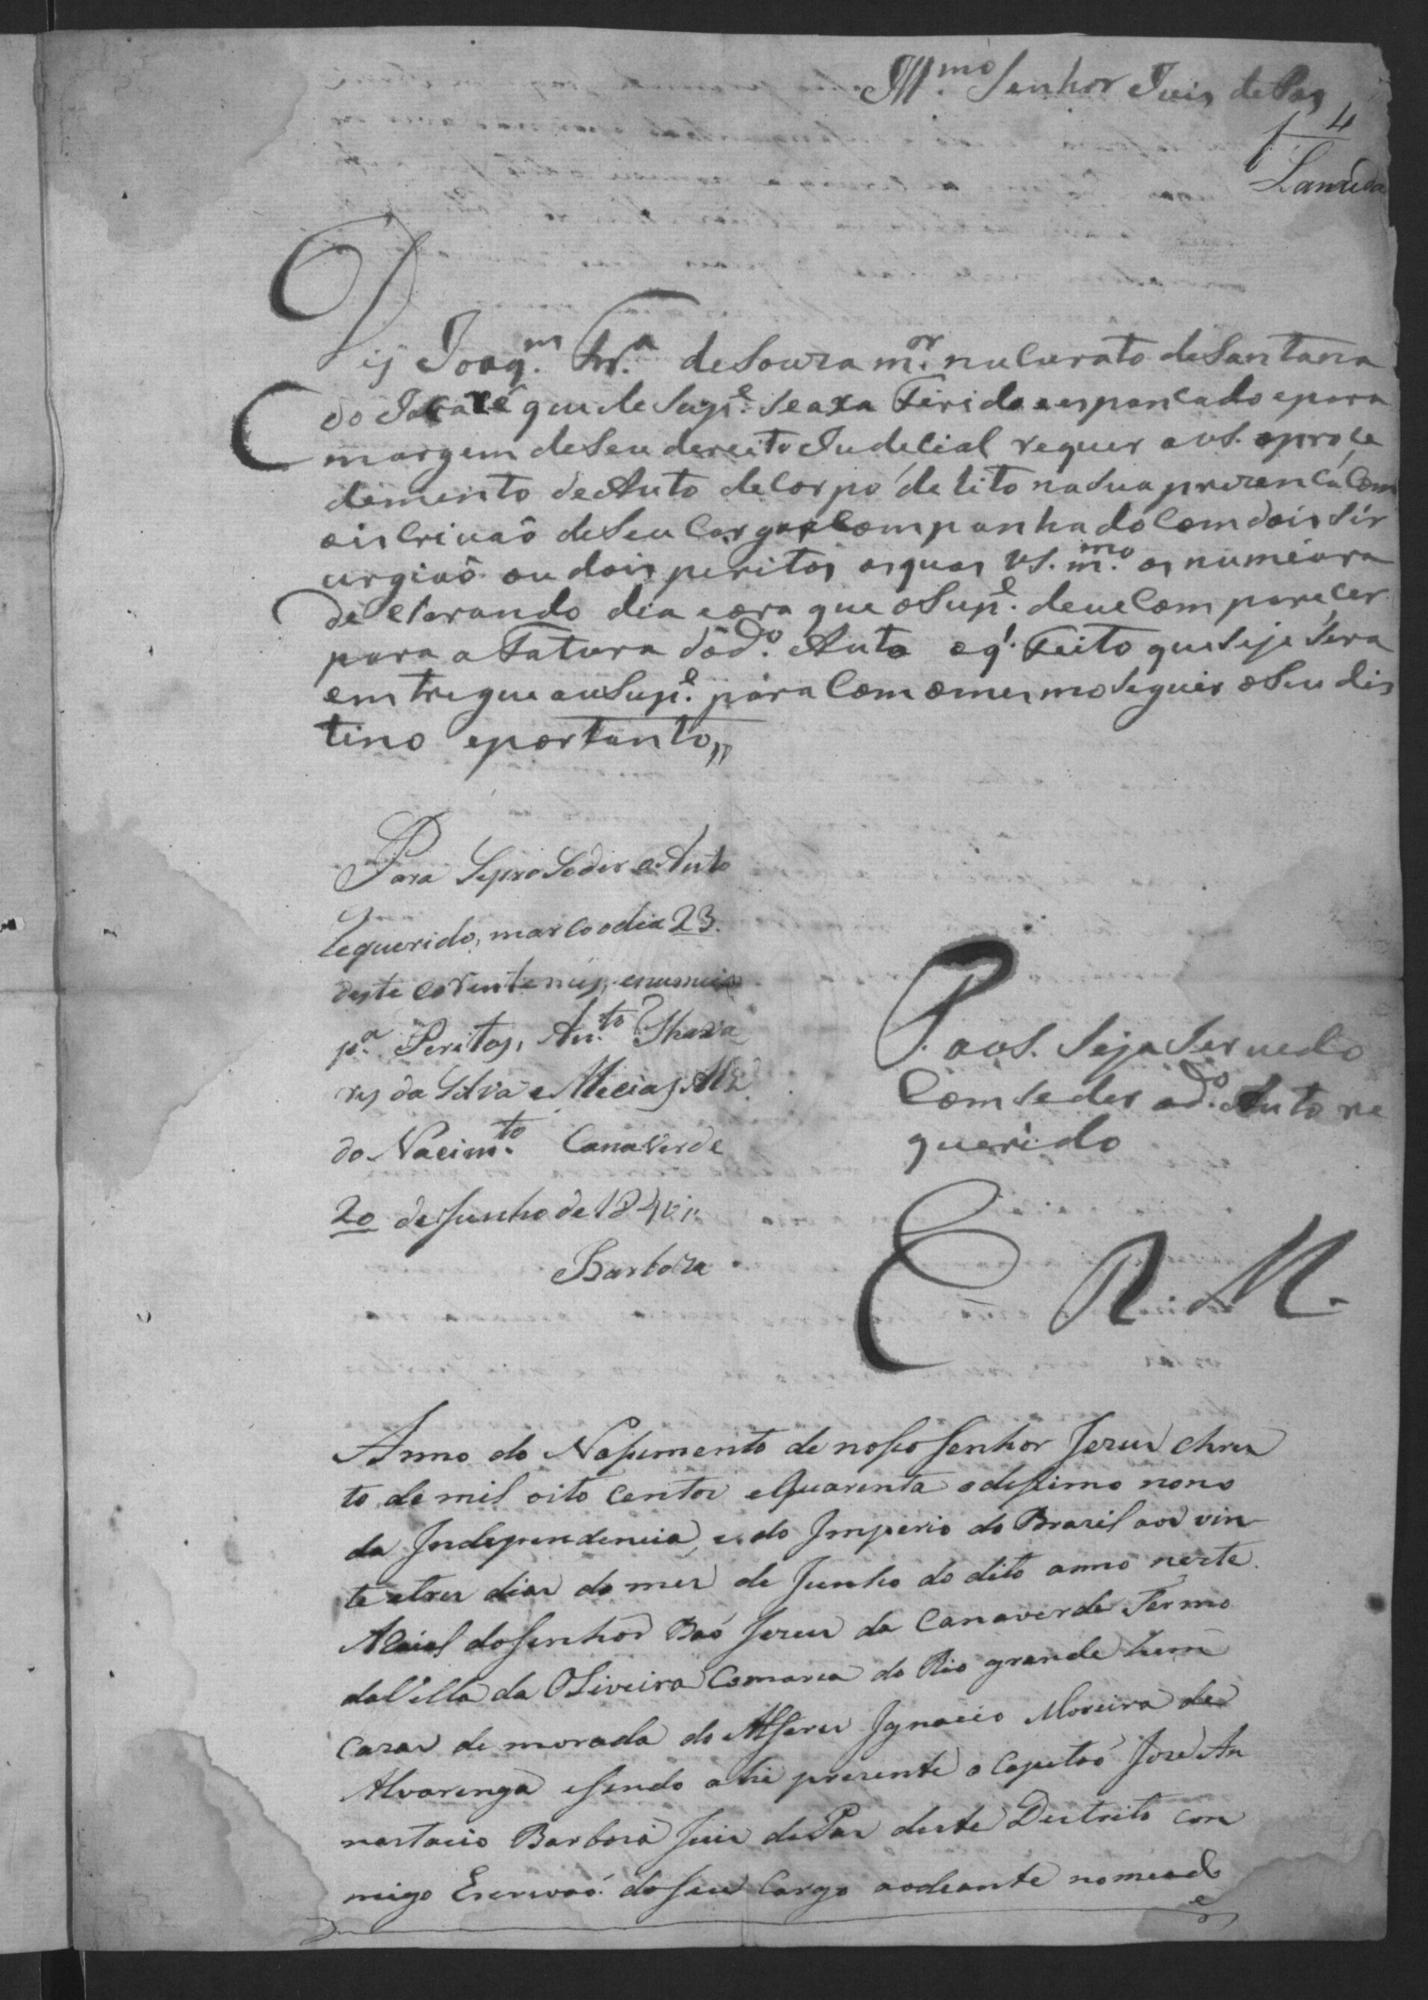 Illmo. Senhor Juis de Pas
f 4
Lamêda
Dis Joaqm. Frª. de Souza mor. nu Curato de Santana
do Jacaré que de Supe. se axa Ferido e espancado e para
margem de Seu dereito Judecial requer a vS. o proce
demento de Auto de Corpo de lito na sua prezenca Com
o iscrivaõ de Seu Cargo acompanhado Com dois Sir
urgioẽs ou dois peritos os quas VS. mmo. os numéara
declarando dia e ora que o Supe. deve Comparecer
para a Fatura dó do. Auto e q'. Feito que seje séra
emtregue au Supe. pára Com o mesmo seguir o Seu dis
tino e portanto,,
Para Seproseder o Auto
Requerido, marco o dia 23.
deste corente mes, e numeio
pª. Peritos, Anto. Thava
res da Silva e Mecias Mel.
do Nacimto. Cana Verde
20 de Junho de 184
Barboza
P. a vS. Seja Servedo
Comseder o do. Auto re
querido
E R. M.
Anno do Nassimento de nosso Senhor Jezus Chris
to de mil oito centos e Quarenta e desimo nono
da Independencia e do Imperio do Brazil aos vin
te e tres dias do mes de Junho do dito anno neste
Araial do Senhor Baõ Jezus da Canaverde Termo
da Villa da Oliveira Comarca do Rio grande hem
Cazas de morada do Alferes Ignacio Moreira de
Alvarenga e sendo a hi prezente o Capitaõ Joze An
nastacio Barboza Juis de Pas deste Destrito con
migo Escrivaõ do seu Cargo aodeante nomead
e